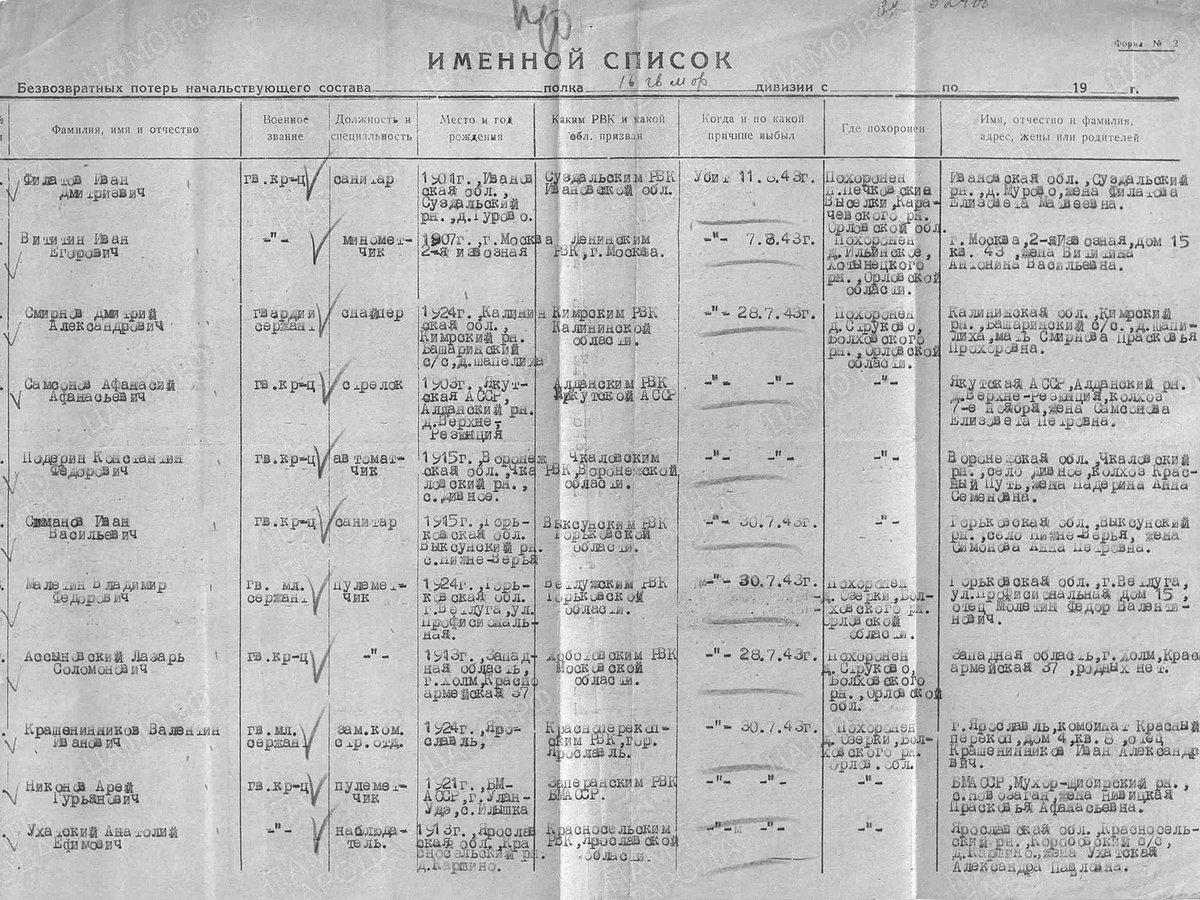 Форма № 2
ИМЕННОЙ СПИСОК
Безвозвратных потерь начальствующего состава полка 16 гв мор дивизии с по 19 г.
Фамилия, имя и отчество
Военное звание
Должность и специальность
Место и год рождения
Каким РВК и какой обл. призван
Когда и по какой причине выбыл
Где похоронен
Имя, отчество и фамилия, адрес, жены или родителей
Филатов Иван
Дмитриевич
гв.кр-ц
санитар
1901г.,Иванов
ская обл.,
Суздальский
рн.,д.Гурово.
Суздальским РВК
Ивановской обл.
Убит 11.8.43г.
Похоронен
п.Печковские
Выселки,Кара-
чевского рн.
Орловской обл.
Ивановская обл.,Суздальский
рн.,д.Мурово,жена Филатова
Елизовета Матвеевна.
Вититин Иван
Егорович
-"-
миномет-
чик
1907г.,г.Москва
2-я извозная
Ленинским
РВК,г.Москва.
-"- 7.8.43г.
Похоронен
д.Ильинское,
Хотынецкого
рн.,Орловской
области.
г.Москва,2-яИзвозная,дом 15
кв. 43 ,жена Вититина
Антонина Васильевна.
Смирнов Дмитрий
Александрович
гвардии
сержант
снайпер
1924г.,Калинин
ская обл.,
Кимрский рн.
Башаринский
с/с,д.шапелиха
Кимрским РВК
Калининской
области.
-"- 28.7.43г.
Похоронен
д.Струково,
Волховского
рн.,Орловской
области.
Калининская обл.,Кимрский
рн.,Башаринский с/с.,д.шапи-
лиха,мать Смирнова Прасковья
Прохоровна.
Самсонов Афанасий
Афанасьевич
гв.кр-ц
стрелок
1903г.,Якут-
ская АССР,
Алданский рн.
д.Верхне-
Резюнция
Алданским РВК
Якутской АССР
-"- -"-
-"-
Якутская АССР,Алданский рн.
д.Верхне-Резюнция,колхоз
7-е Ноября,жена Самсонова
Елизовета Петровна.
Подерин Константин
Федорович
гв.кр-ц
автомат-
чик
1915г.,Воронеж
ская обл.,Чка
ловский рн.,
с.дивное.
Чкаловским
РВК,Воронежской
области.
-"- -"-
-"-
Воронежская обл.,Чкаловский
рн.,село дивное,Колхоз Крас-
ный Путь,жена Падерина Анна
Семеновна.
Симанов Иван
Васильевич
гв.кр-ц
санитар
1915г.,Горь-
ковская обл.
Выксунский рн.
с.Нижне-Верья
Выксунским РВК
Горьковской
области.
-"- 30.7.43г.
-"-
Горьковская обл.,Выксунский
рн.,село Нижне-Верья, жена
Симонова Анна Петровна.
Малетин Владимир
Федорович
гв. мл.
сержант
пулемет-
чик
1924г.,Горь-
ковская обл.
г.Ветлуга,ул.
Профисиональ-
ная.
Ветлужским РВК
Горьковской
области.
-"- 30.7.43г.
Похоронен
д.Озерки,Бол-
ховского рн.
Орловской
области.
Горьковская обл.,г.Ветлуга,
ул.Профисиональная дом 15 ,
отец Молетин Федор Валенти-
нович.
Ассыновский Лазарь
Соломонович
гв.кр-ц
-"-
1913г.,Запад-
ная область,
г.Холм,Красно
армейская 37
РВК
Московской
области.
-"- 28.7.43г.
Похоронен
д.Струково,
Волховского
рн.,Орловской
обл.
Западная область,г.Холм,Крас
армейская 37 ,родных нет.
Крашенинников Валентин
Иванович
гв. мл.
сержант
зам.ком.
стр.отд.
1924г.,Яро-
славль,
Красноперекоп-
ским РВК,гор.
Ярославль.
-"- 30.7.43г.
Похоронен
д.Озерки,Бол-
ховского рн.
Орлов. обл.
г.Ярославль,комбинат Красный
перекоп,дом 4,кв.8 ,отец
Крашенинников Иван Александр
вич.
Никонов Арей
Гурьянович
гв.кр-ц
пулемет-
чик
1921г.,БМ-
АССР,г.Улан-
Удэ,с.Илышка
РВК
БМАССР.
-"- -"-
-"-
БМАССР,Мухор-шибирский рн.,
с.новозаган,жена Нивицкая
Прасковья Афанасьевна.
Ухатский Анатолий
Ефимович
-"-
наблюда-
тель.
1913г.,Ярослав
ская обл.,Кра
сносельский рн.
д.Каршино.
Красносельским
РВК,Ярославской
области.
-"- -"-
-"-
Ярославская обл.,Красносель-
ский рн.,Коробовский с/с,
д.Каршино.жена Ухатская
Александра Павловна.